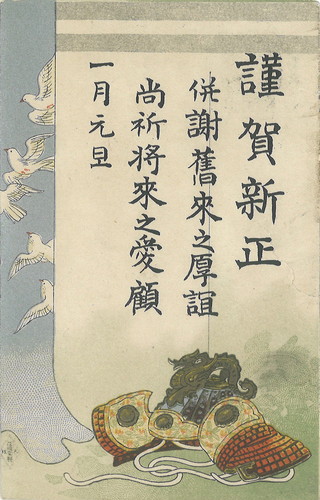 謹賀新正
併謝舊來之厚誼
尚祈將來之愛顧
一月元旦